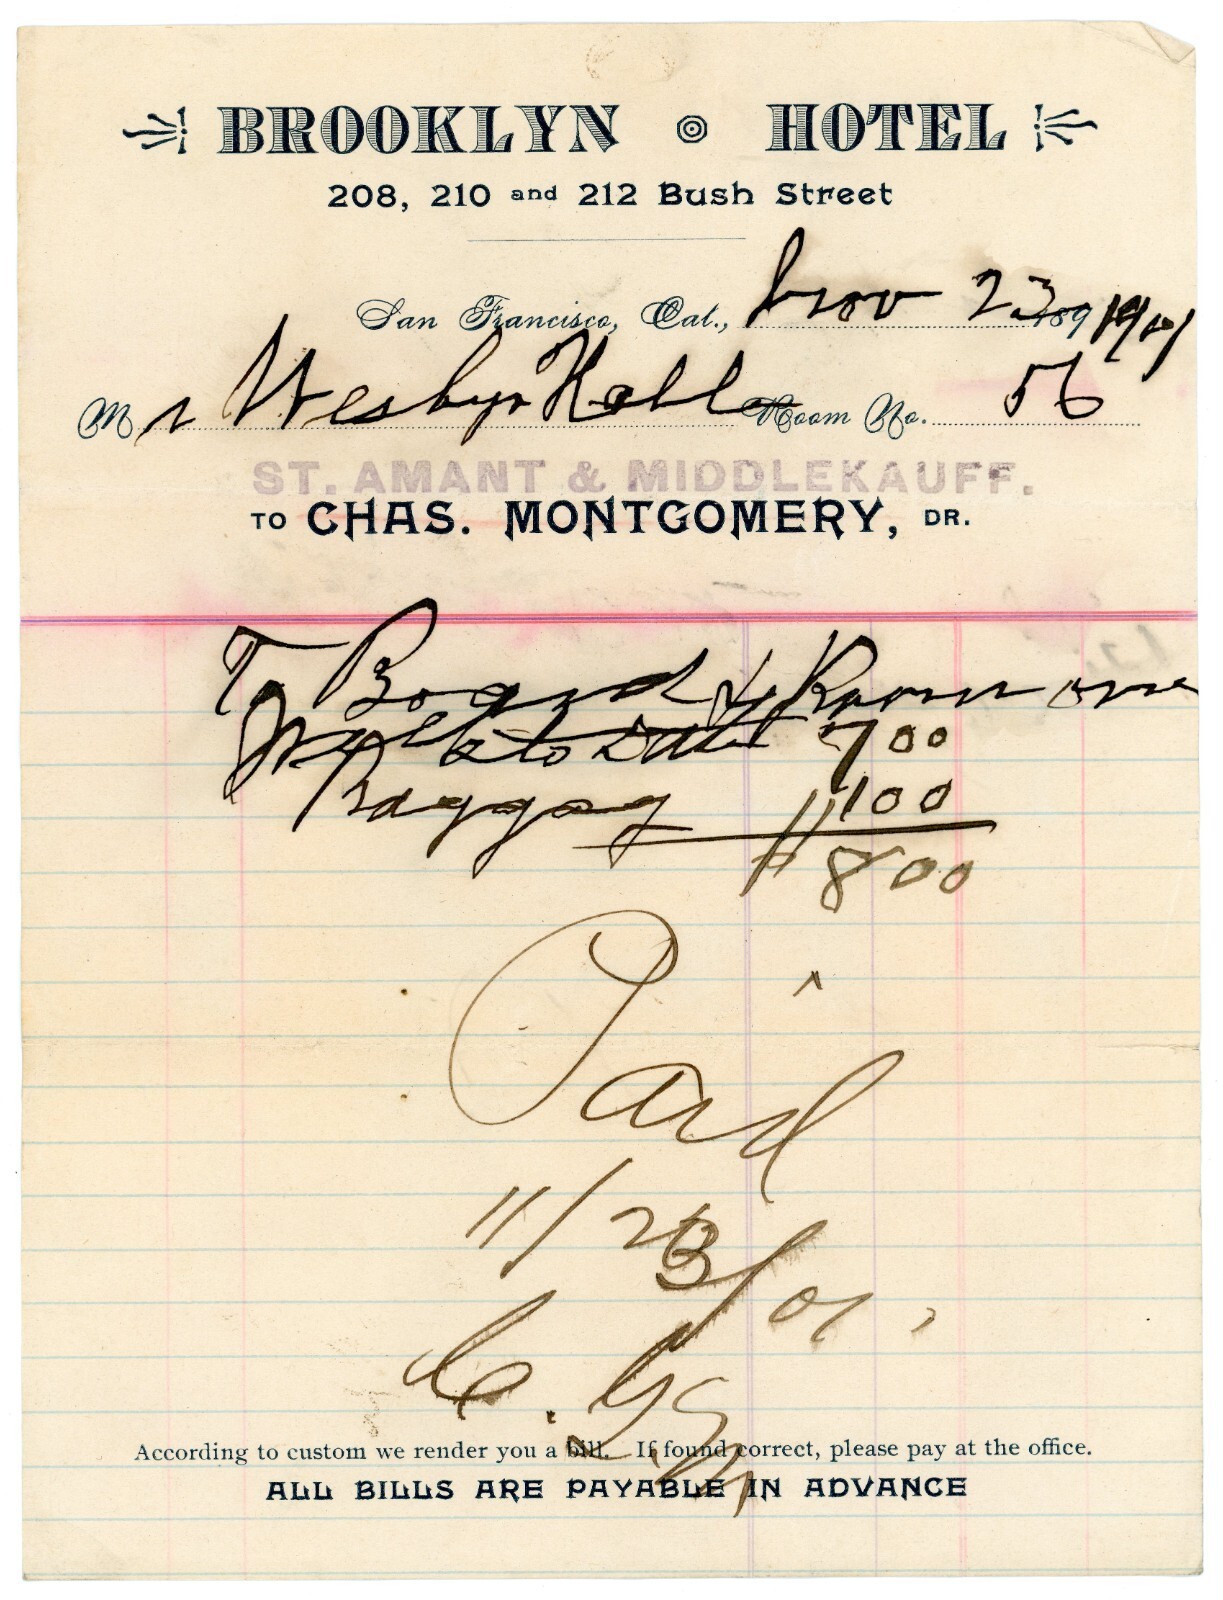 BROOKLYN HOTEL
208, 210 and 212 Bush Street
San Francisco, Cal., Nov 23 189 1901
Mr Room No. 56
ST. AMANT & MIDDLEKAUFF.
TO CHAS. MONTGOMERY, DR.
To Board & Room one
Week to date 7 00
Baggag 1 00
$ 8 00
Paid
11/23/01.
According to custom we render you a bill. If found correct, please pay at the office.
ALL BILLS ARE PAYABLE IN ADVANCE